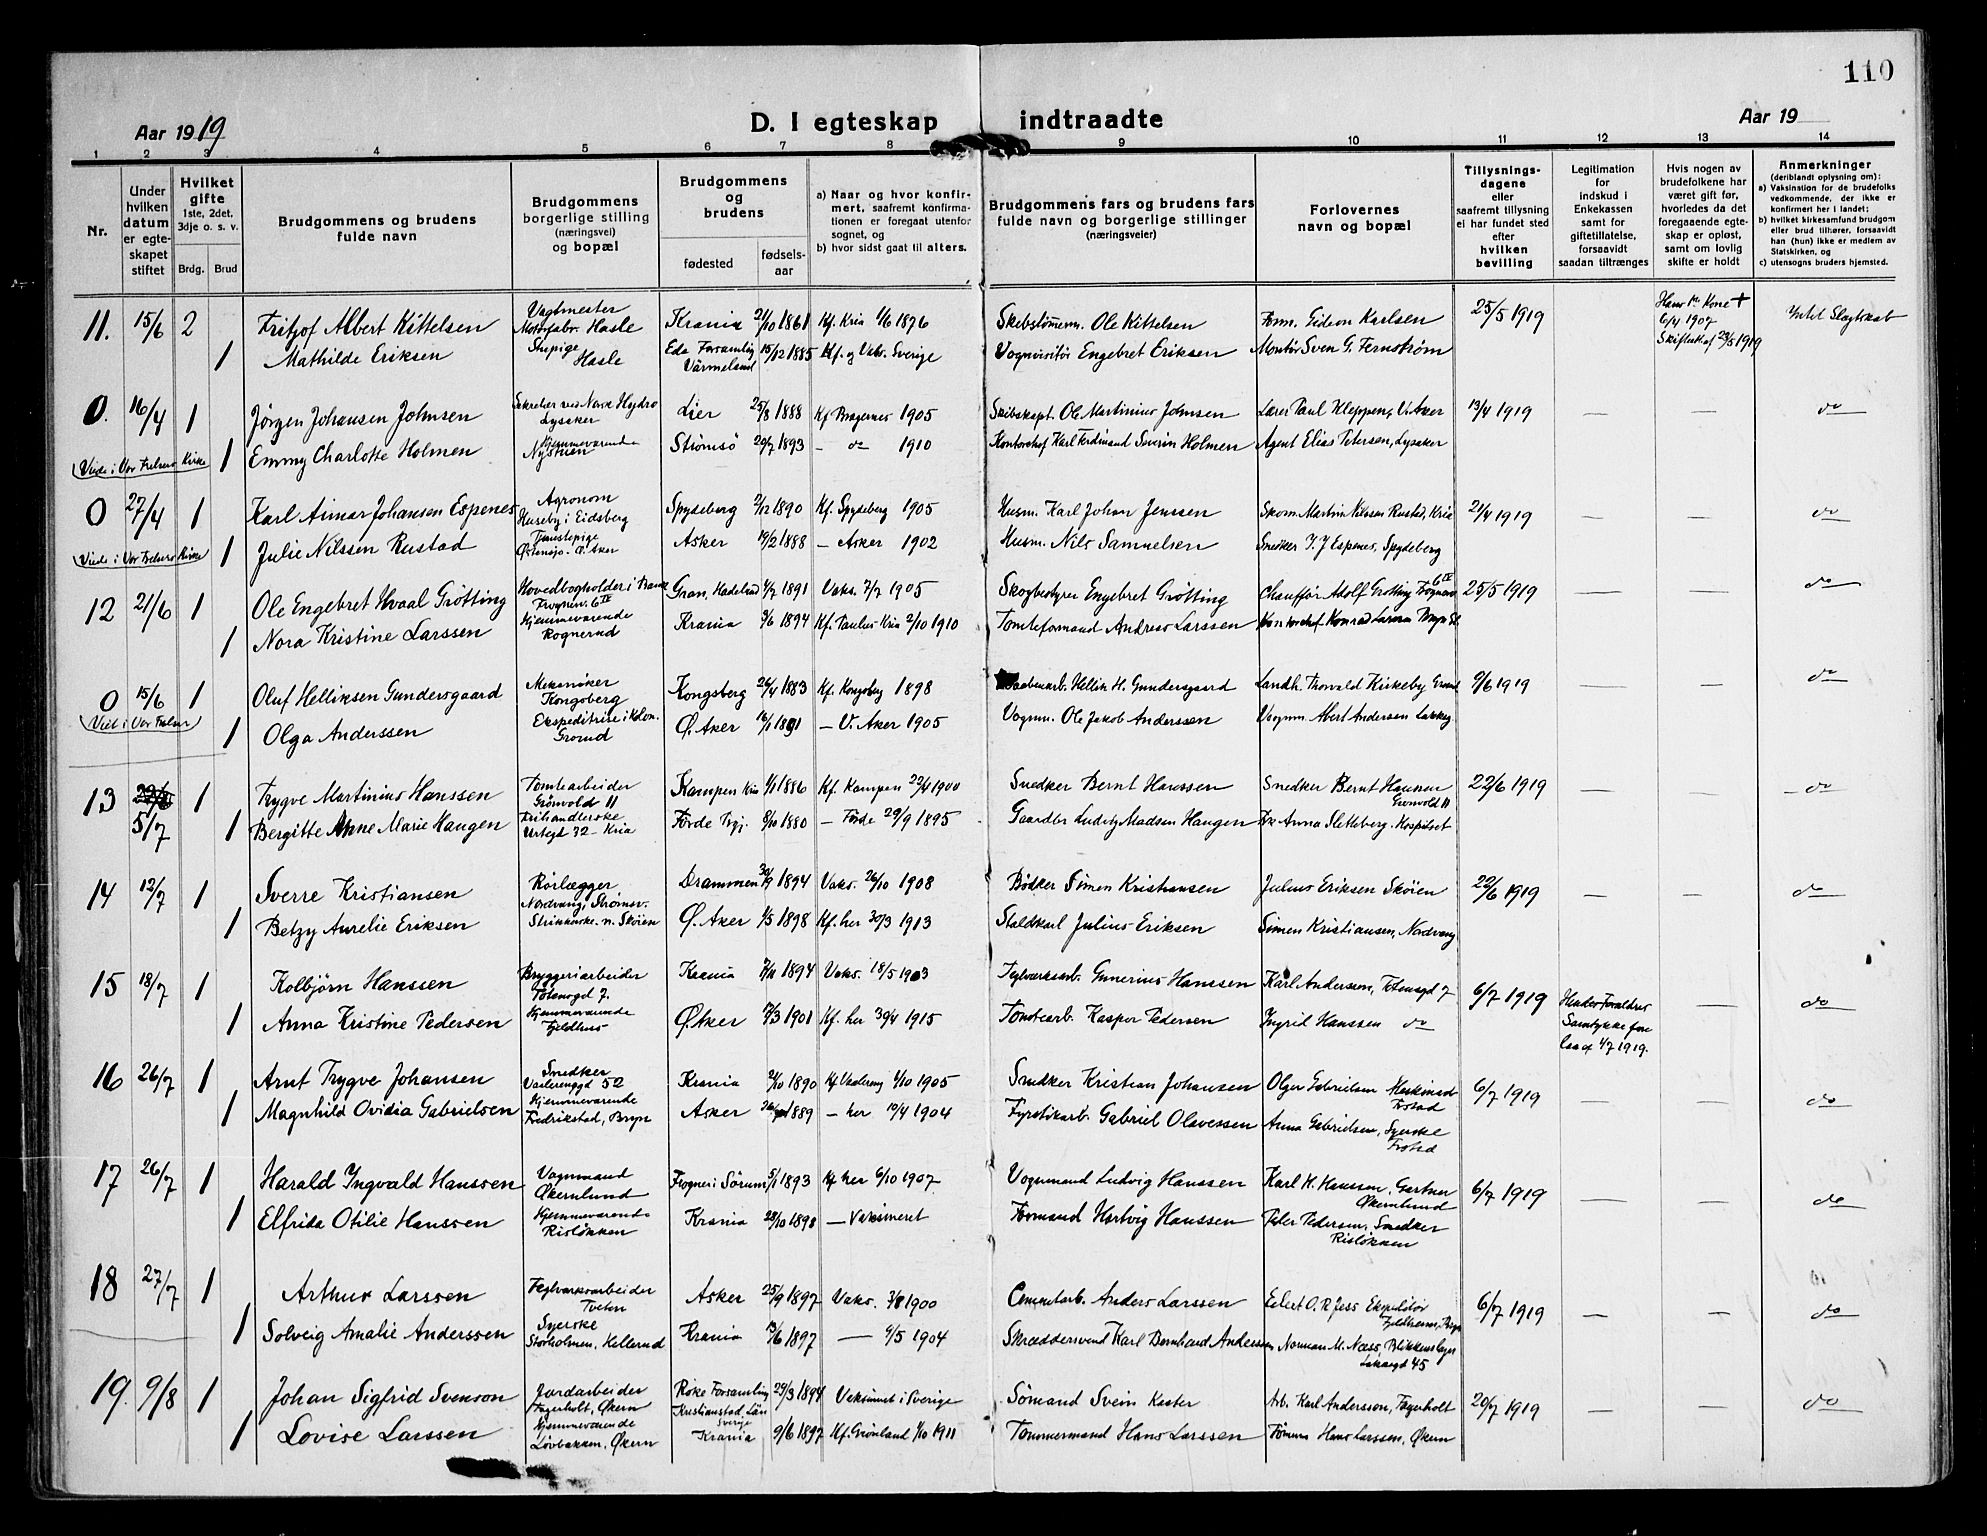 110
Aar 1919
D. I egteskap indtraadte
Aar 19
1 2 3 4 5 6 7 8 9 10 11 12 13 14
Nr.
Under hvilken datum er egteskapet stiftet
Hvilket gifte 1ste, 2det, 3dje o. s. v.
Brdg. Brud
Brudgommens og brudens fulde navn
Brudgommens borgerlige stilling (næringsvei) og bopæl
Brudgommens og brudens
fødested
fødselsaar
a) Naar og hvor konfirmert, saafremt konfirmationen er foregaat utenfor sognet, og
b) hvor sidst gaat til alters.
Brudgommens fars og brudens fars fulde navn og borgerlige stillinger (næringsveier)
Forlovernes navn og bopæl
Tillysningsdagene eller saafremt tillysning ei har fundet sted efter hvilken bevilling
Legitimation for indskud i Enkekassen samt for giftetillatelse, forsaavidt saadan tiltrænges
Hvis nogen av brudefolkene har været gift før, hvorledes da det foregaaende egteskap er opløst, samt om lovlig skifte er holdt
Anmerkninger (deriblandt oplysning om):
a) Vaksination for de brudefolks vedkommende, der ikke er konfirmert her i landet;
b) hvilket kirkesamfund brudgom eller brud tilhører, forsaavidt han (hun) ikke er medlem av Statskirken, og
c) utensogns bruders hjemsted.
11. 15/6 2 Fritjof Albert Kittelsen Vagtmester Motorfabr. Hasle Krania 21/10 1861 Kf. Kria 1/6 1876 Skibstømerm. Ole Kittelsen Form. Gideon Karlsen 25/5 1919 Hans 1ste Kone + 6/4 1907 Intet Slegtskab
1 Mathilde Eriksen Hasle Eda Forsamling Värmeland 15/12 1885 Kf. og Vaks. Sverige Engebret Eriksen Montør Sven G. Fernstrøm
0. 16/4 1 Jørgen Johansen Johnsen Sekretær ved Norsk Hydro Lysaker Lier 25/8 1888 Kf Bragernes 1905 Skibskapt. Ole Martinius Johnsen Lærer Paul Kleppen, V. Aker 13/4 1919 — — do
(Viede i Vor Frelsers Kirke 1 Emmy Charlotte Holmen Hjemmeværende Nystuen Strømsö 20/7 1893 — do 1910 Kontorchef Karl Ferdinand Severin Holmen Agent Elias Petersen, Lysaker
0 27/4 1 Karl Aimar Johansen Espenes Agronom Huseby i Eidsberg Spydeberg 2/12 1890 Kf. Spydeberg 1905 Husm. Karl Johan Jenssen Skom. Martin Nilssen Rustad, Kria 21/4 1919 — — do
(Viede i Vor Frelsers Kirke 1 Julie Nilssen Rustad Tjenestepige Østensjø. Ø. Aker Asker 19/2 1888 — Asker 1902 Husm. Nils Samuelsen Snedker J. J Espenes, Spydeberg
12 21/6 1 Ole Engebret Hvaal Grötting Hovedbogholder i Bank Frognerv. 6 IV Gran, Hadeland 4/7 1891 Vaks. 7/7 1905 Skogbestyrer Engebret Grötting Chauffør Adolf Grötting Frognerv 6 IV 25/5 1919 — — do
1 Nora Kristine Larssen Hjemmeværende Rognerud Krania 9/6 1894 Kf. Paulus Kria 2/10 1910 Tomteformand Andreas Larssen Kontorchef Konrad Larssen Bryn St.
0 15/6 1 Oluf Helliksen Gundersgaard Mekaniker Kongsberg Kongsberg 26/4 1883 Kf. Kongsberg 1898 Hellik H. Gundersgaard Landh. Thorvald Kirkeby Grorud 9/6 1919 — — do
(Viet i Vor Frelser) 1 Olga Anderssen Ekspeditrise i Kolon. Grorud Ø. Aker 16/1 1891 — V. Aker 1905 Vognm. Ole Jakob Anderssen Vognm. Albert Andersen
13 5/7 1 Trygve Martinius Hanssen Tomtearbeider Grönvold 11 Kampen Kria 1/1 1886 Kf. Kampen 22/4 1900 Snedker Bernt Hanssen Snedker Bernt Hanssen Grönvold 11 22/6 1919 — — do
1 Bergitte Anne Marie Haugen Frihandlerske Urtegd 32 – Kria Förde 8/10 1880 — Förde 29/9 1895 Gaardbr Ludvig Madsen Haugen Frk Anna Sletteberg. Hospitset
14 12/7 1 Sverre Kristiansen Rörlægger Nordvang, Strömsv. Drammen 30/9 1894 Vaks. 26/10 1908 Bödker Simen Kristiansen Julius Eriksen Sköien 22/6 1919 — — do
1 Betzy Aurelie Eriksen n. Skøien Ø. Aker 1/5 1898 Kf. her 30/3 1913 Staldkarl Julius Eriksen Simen Kristiansen, Nordvang
15 18/7 1 Kolbjörn Hanssen Bryggeriarbeider Totensgd 7. Krania 7/11 1894 Vaks 18/5 1903 Teglverksarb. Gunerius Hanssen Karl Andersen, Totensgd 7 6/7 1919 Hendes Forældres Samtykke forelaa 4/7 1919. — do
1 Anna Kristine Pedersen Hjemmeværende Fjeldhus Ø. Aker 17/3 1901 Kf. her 30/4 1915 Tomtearb. Kasper Pedersen Ingrid Hanssen do
16 26/7 1 Arnt Trygve Johansen Snedker Vaalerenggd 52 Krania 21/10 1890 Kf Vaalereng 1/10 1905 Snedker Kristian Johansen Olger Gabrielsen Frstad 6/7 1919 — — do
1 Magnhild Ovidia Gabrielsen Hjemmeværende Fredrikstad, Bryn Asker 1889 — her 10/4 1904 Fyrstikarb. Gabriel Olavessen Anna Gabrielsen, Syerske Frstad
17 26/7 1 Harald Ingvald Hanssen Vognmand Økernlund Frogner i Sörum 5/1 1893 Kf her 6/10 1907 Vognmand Ludvig Hanssen Karl H. Hanssen, Gartner Økernlund 6/7 1919 — — do
1 Elfrida Otilie Hanssen Hjemmeværende Risløkken Krania 28/10 1898 — Vaksineret Formand Hartvig Hanssen Peter Pedersen, Snedker Risløkken
18 27/7 1 Arthur Larssen Teglverksarbeider Tveten Asker 25/9 1897 Vaks. 3/8 1900 Cementarb. Anders Larssen Eilert O. R. Jess Ekspeditör Fjeldheim, Bryn 6/7 1919 — — do
1 Solveig Amalie Anderssen Syerske Storholmen, Kellerud Krania 13/6 1897 — 9/5 1904 Skræddersvend Karl Bernhard Anderssen Norman M. Næss, Blikkenslager
19. 9/8 1 Johan Sigfrid Svenson Jordarbeider Fagerholt, Økern Röke Forsamling Kristianstad, Län Sverige 29/3 1894 Vaksineret i Sverige Sömand Svein Kester Arb. Karl Andersson, Fagerholt 20/7 1919 — — do
1 Lovise Larssen Hjemmeværende Løvbakken, Økern Krania 9/6 1897 Kf. Grönland 1/10 1911 Tömmermand Hans Larssen Tömrm Hans Larssen, Økern